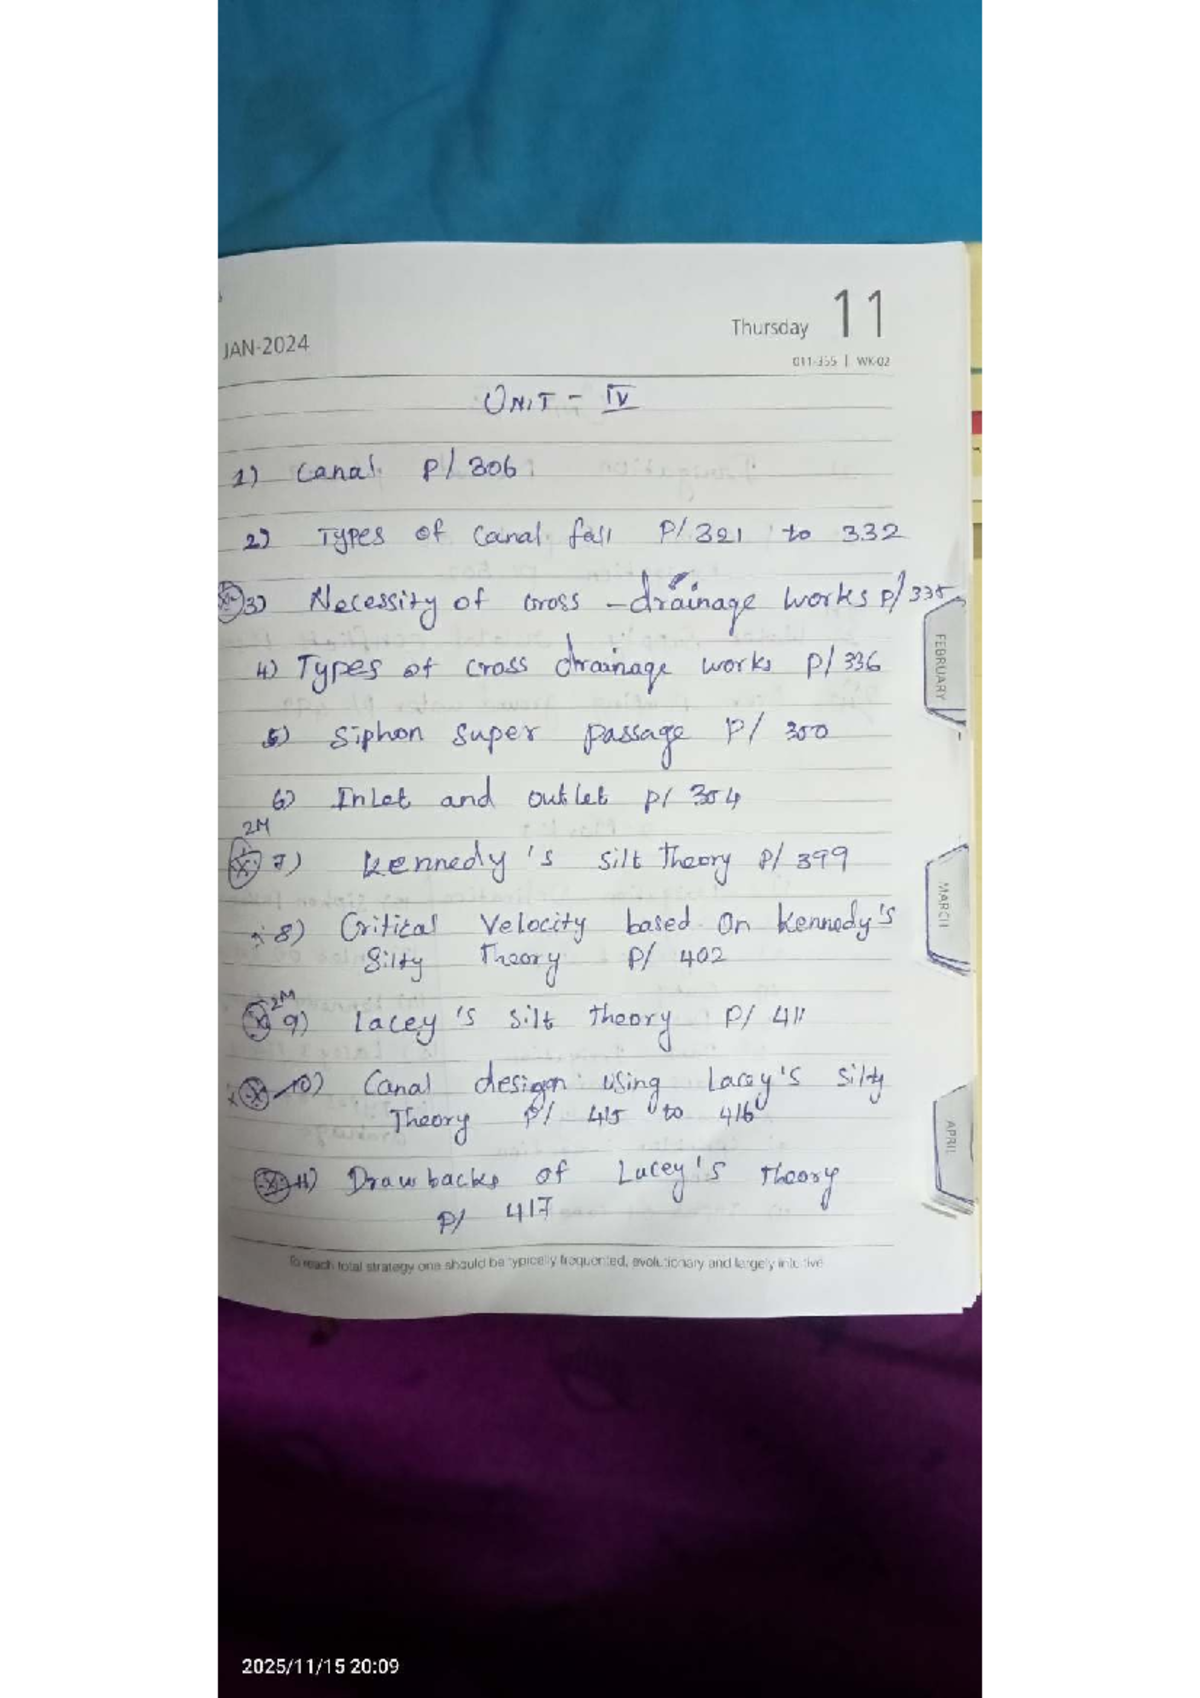 JAN-2024
Thursday 11
011-355 | WK-02
UNIT - IV
1) Canal P/ 306
2) Types of Canal fall P/ 321 to 332
3) Necessity of cross - drainage works P/ 335
4) Types of cross drainage works P/ 336
5) Siphon super passage P/ 350
6) InLet and outLet P/ 354
2M
7) Kennedy's silt Theory P/ 399
8) Critical Velocity based On Kennedy's
Silty Theory P/ 402
2M
9) Lacey's Silt Theory P/ 411
10) Canal design using Lacey's Silty
Theory P/ 415 to 416
11) Drawbacks of Lacey's Theory
P/ 417
To reach total strategy one should be typically frequented, evolutionary and largely intuitive
FEBRUARY
MARCH
APRIL
2025/11/15 20:09